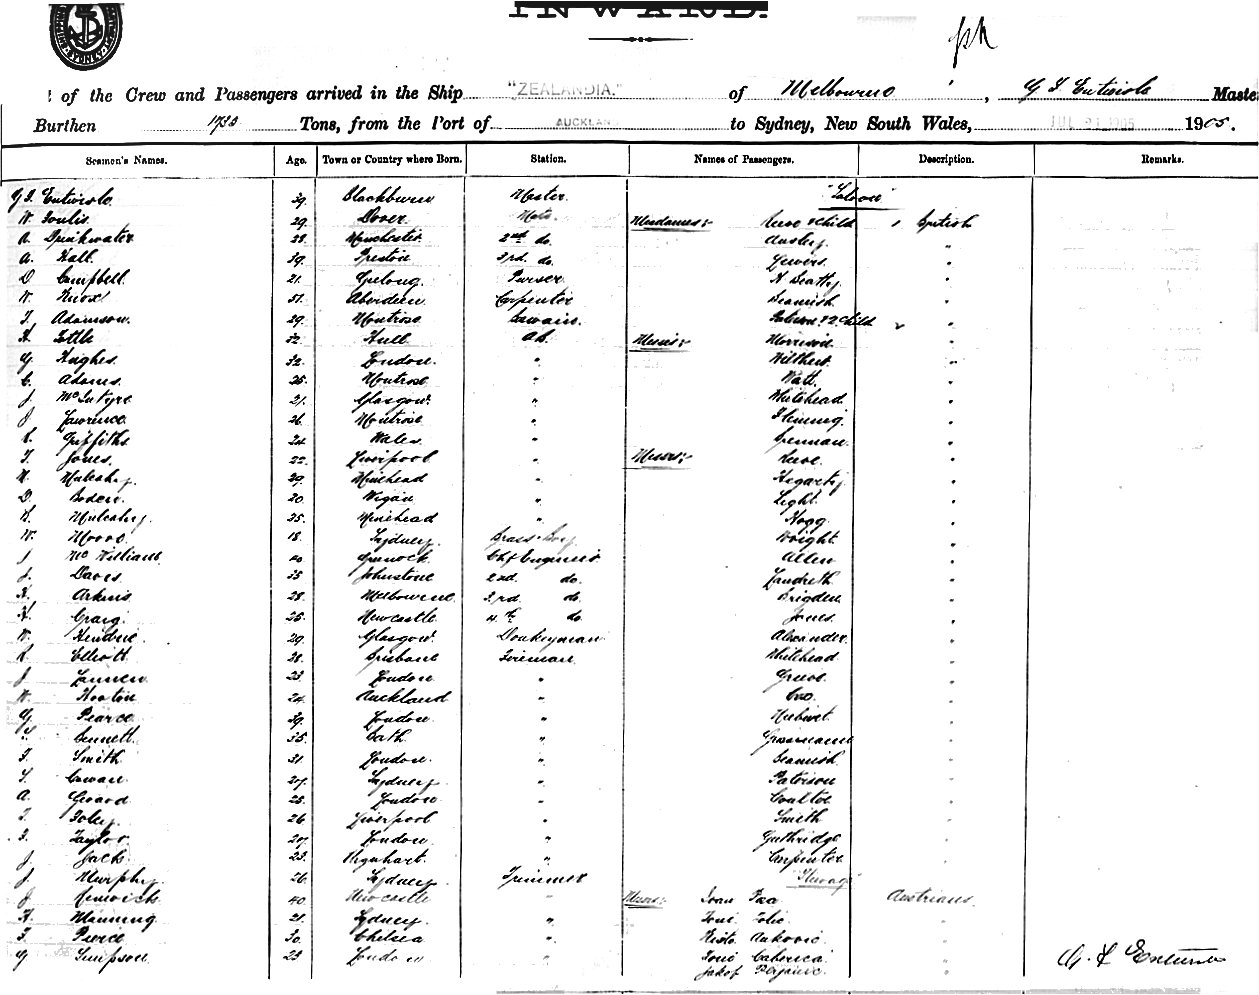 INWARD.
of the Crew and Passengers arrived in the Ship "ZEALANDIA." of Melbourne, G I Entwisle Maste
Burthen Tons, from the Port of AUCKLAND to Sydney, New South Wales, JUL 1905 1905.
Seamen's Names. Age. Town or Country where Born. Station. Names of Passengers. Description. Remarks.
G I Entwisle 39 Blackburn Master "Saloon"
W. 29 Dover Mate Mesdames:- Reeve & Child 1 British
A. Drinkwater 28 Manchester 2nd do. Ansley "
A. Hall 39 Preston 3rd do. Lewers "
D Campbell 21 Geelong Purser "
W. Knox 51 Aberdeen Carpenter Beamish "
T. Adamson 29 Montrose & 2 Child 2 "
32 Hull AB Messrs:- Morrison "
G Hughes. 32 London. " "
C Adams. 25 Montrose " Watt. "
J. McIntyre 21 Glasgow. " Whitehead "
J Lawrence 26 Montrose " Fleming "
Griffiths 24 Wales " "
T. Jones. 22 Liverpool " Messrs:- Reeve. "
Mulcahy. 29 Minehead " Hegarty "
D. Boden. 20 Wigan " Light "
Mulcahy. 25 Minehead " Hogg "
W. 18 Sydney Brass Boy Wright "
McWilliams 40 Greenock Chf Engineer Allen "
J. Davis 35 Johnstone 2nd. do. Landreth "
Arkins 28 Melbourne 3rd. do. Brigden "
Craig. 25 Newcastle 4th do. Jones. "
W. 29 Glasgow. Donkeyman Alexander. "
Elliott 28 Brisbane Fireman Whitehead "
J. 23 London " "
W. Hooton 24 Auckland " Cox "
G. Pearce 39 London " "
Bennett. 35 Bath " "
T. Smith 31 London. " Beamish "
Cowan. 27 Sydney " Paterson "
A. 25 London " "
T. Foley. 26 Liverpool " Smith "
Taylor 27 London " Guthridge "
J. Jack. 23 Urquhart. " Carpenter "
J Murphy. 26 Sydney Trimmer "Steerage"
J. Renwick 40 Newcastle " Messrs:- Ivan Austrians.
Manning 21 Sydney " "
T. Pierce 30 Chelsea " "
G Simpson 23 London " "
Jakof "